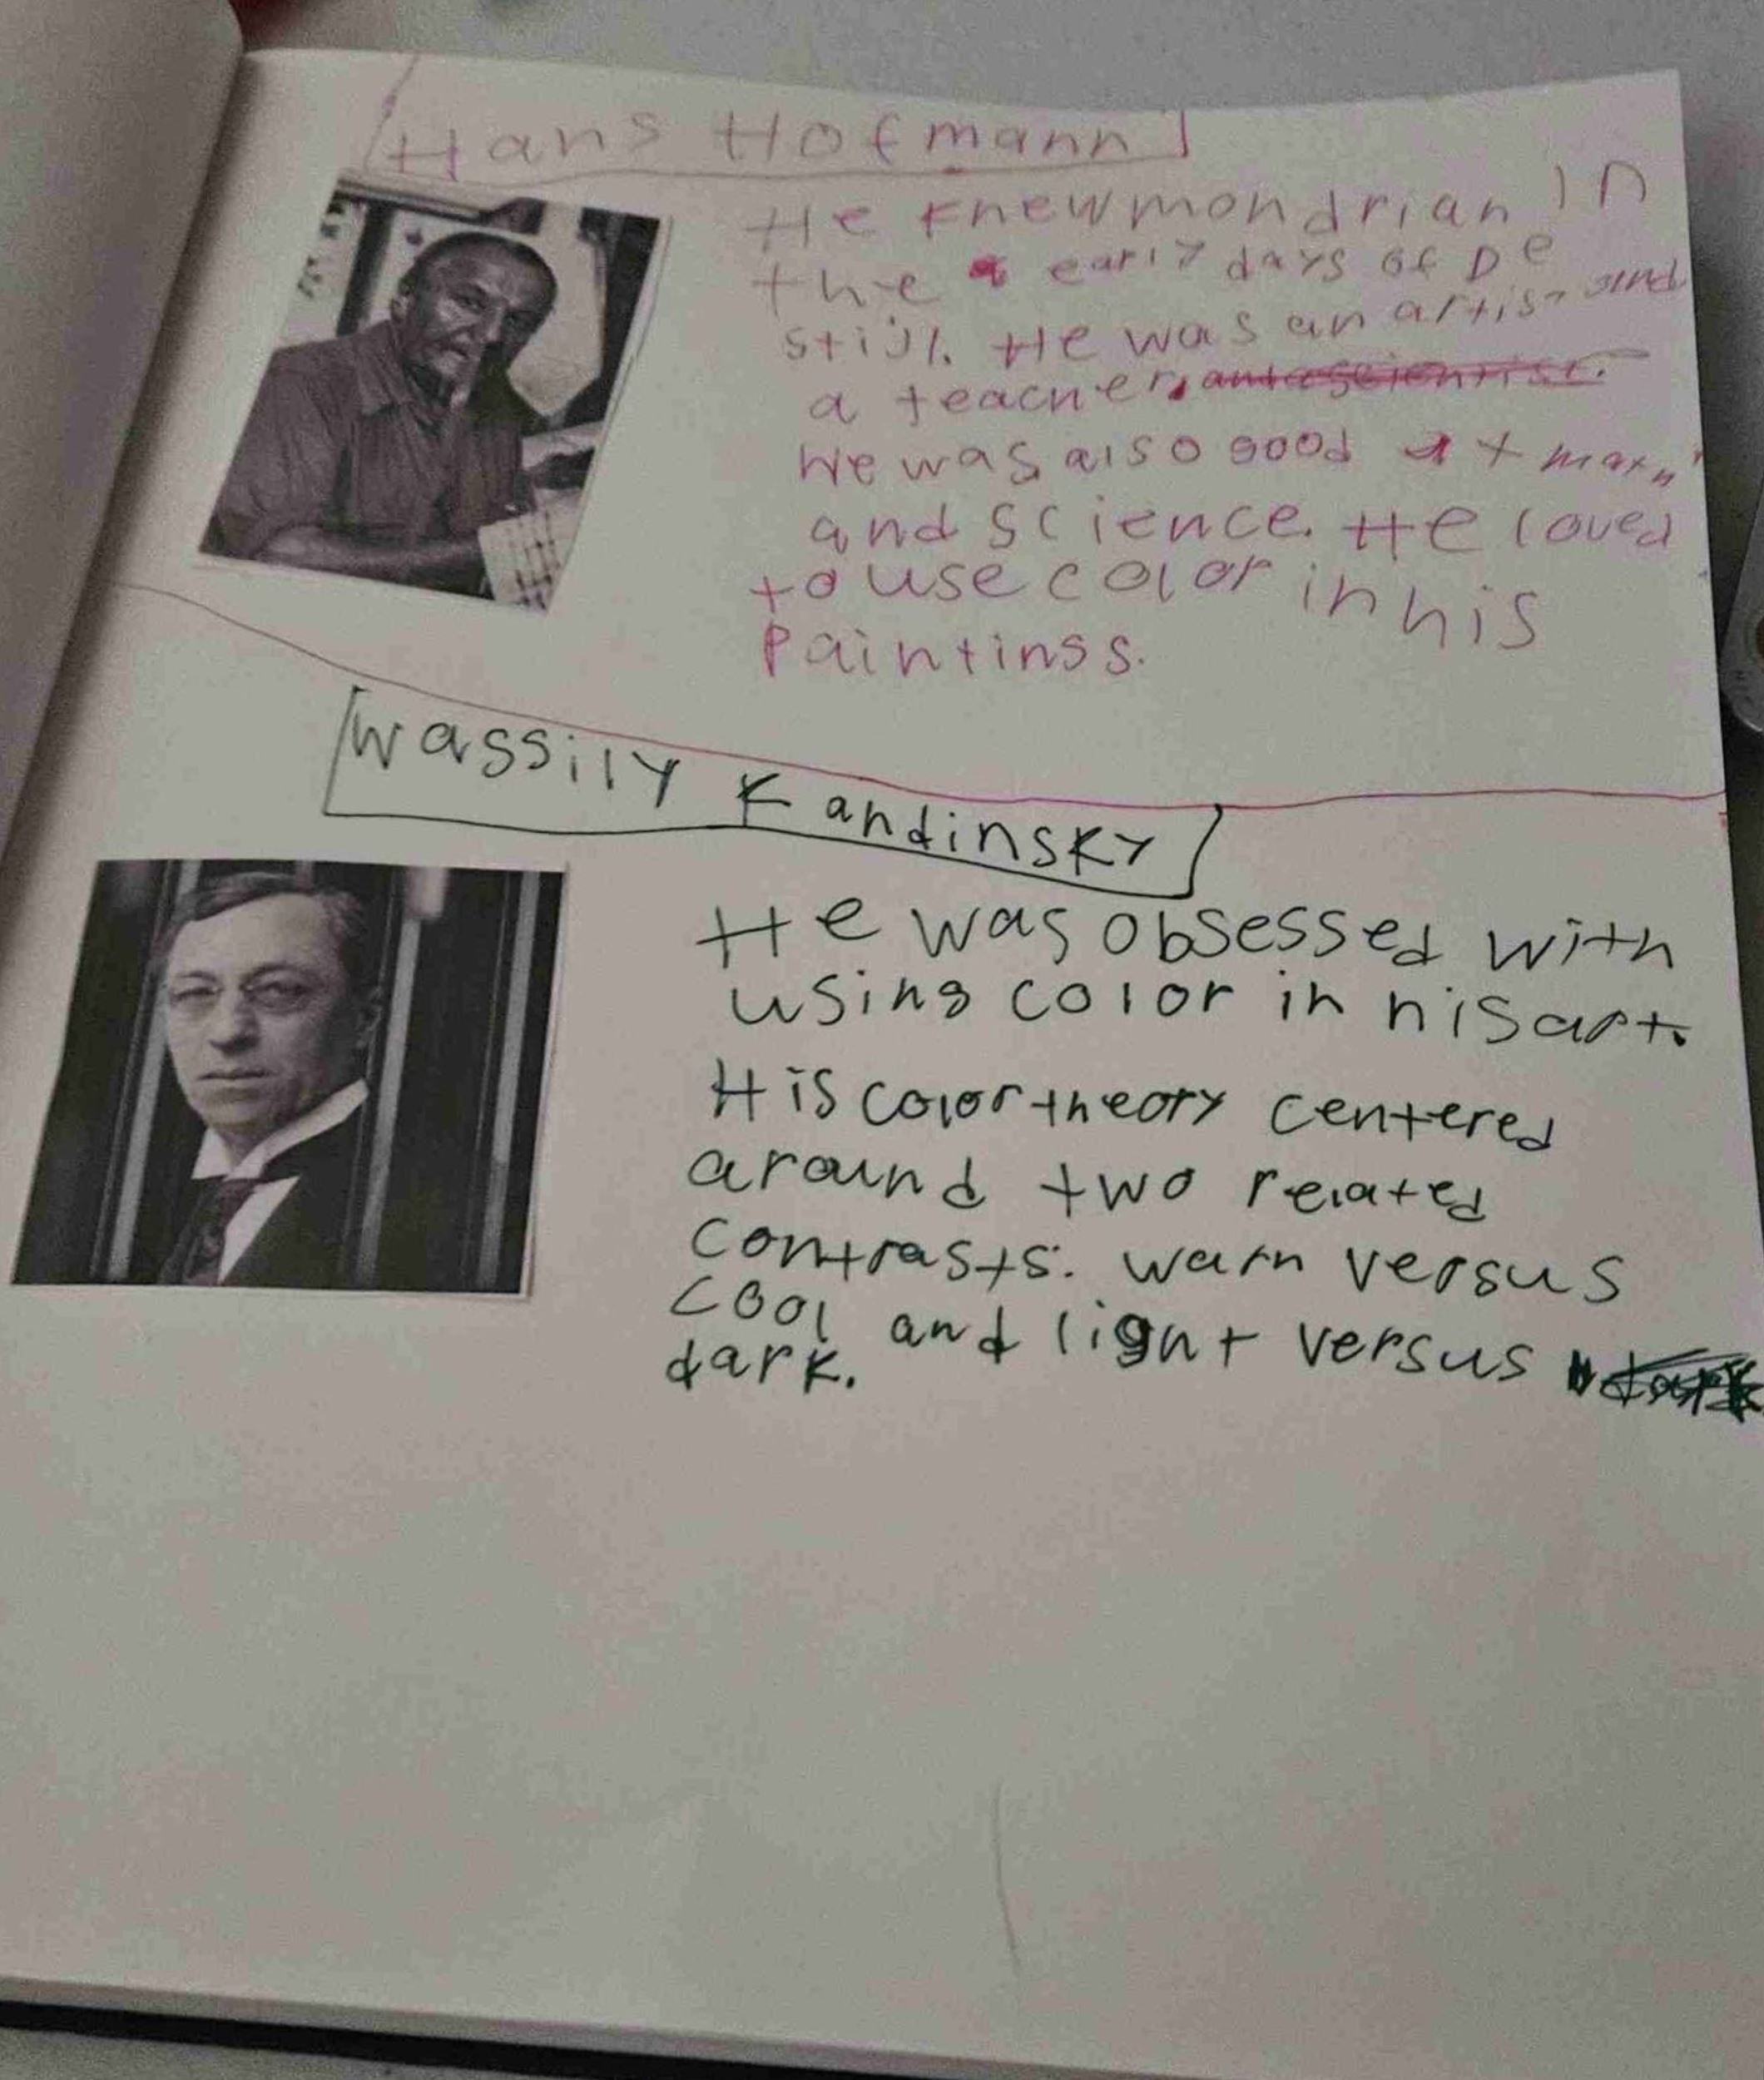 Hans Hofmann
He knew mondrian in
the early days of De
stijl. He was an artist and
a teacher, and a scientist.
He was also good at math
and science. He loved
to use color in his
paintings.
Wassily Kandinsky
He was obsessed with
using color in his art.
His color theory centered
around two related
contrasts: warn versus
cool and light versus dark
dark.